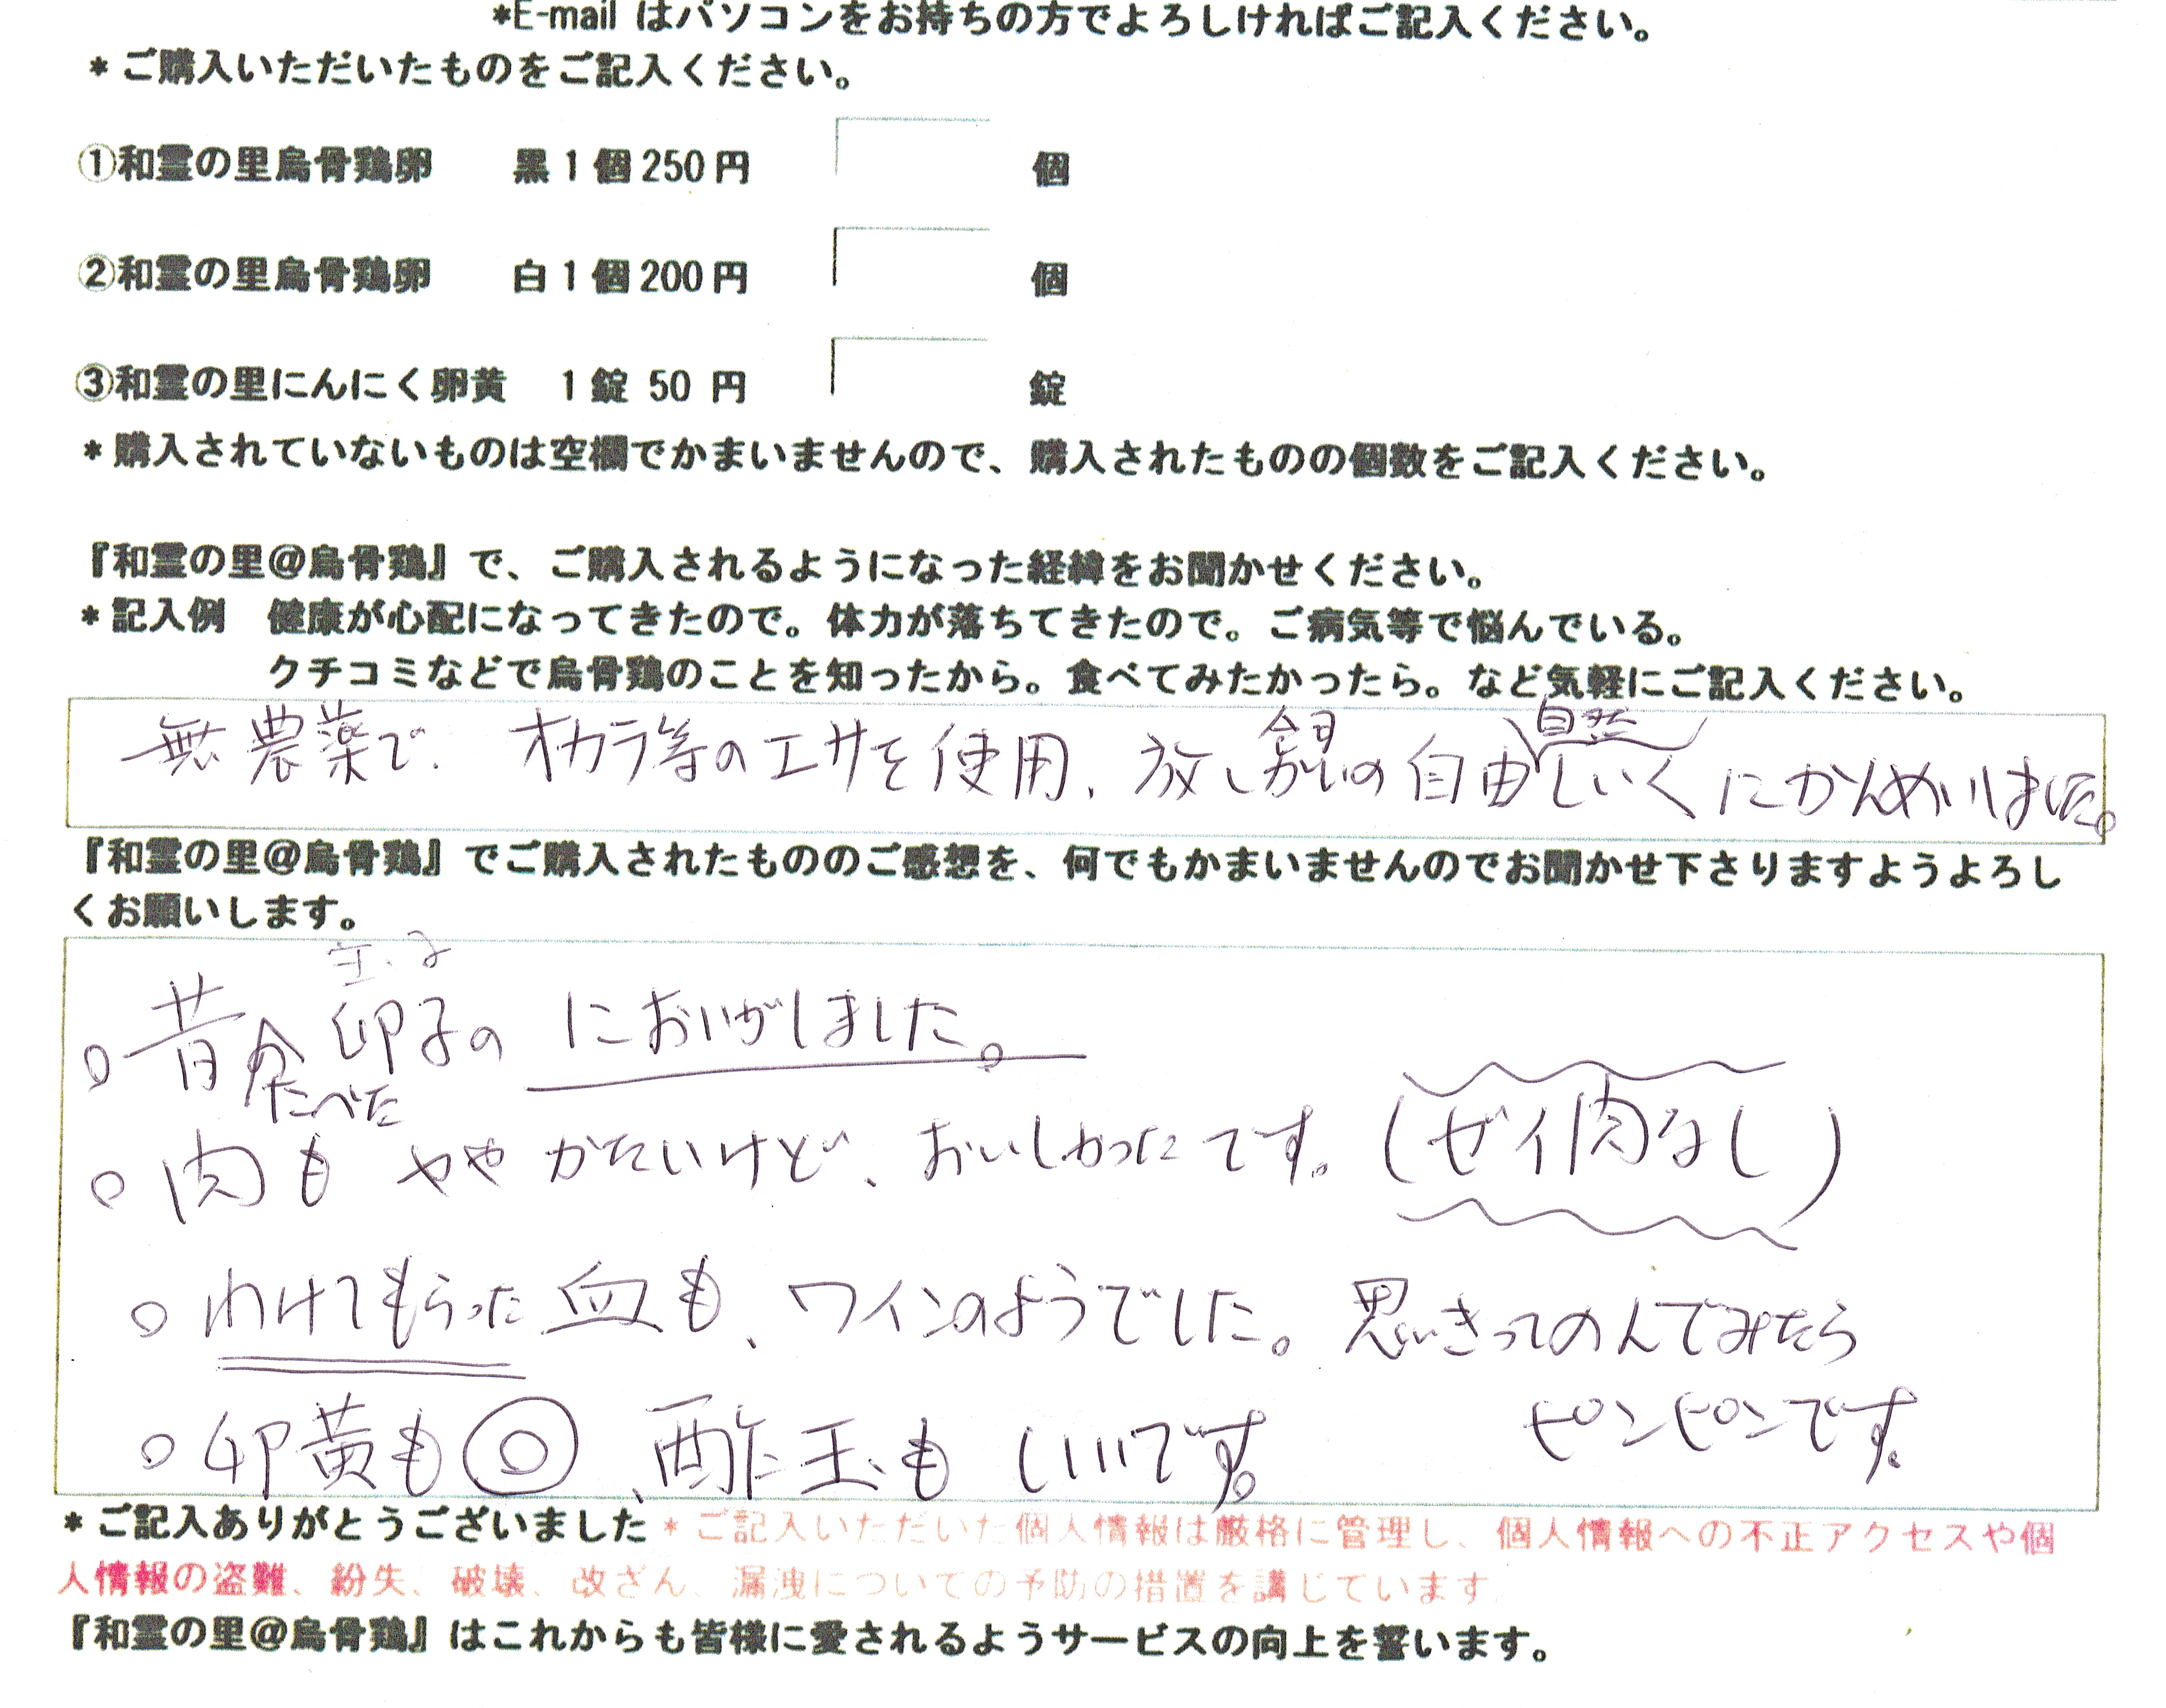 *E-mail はパソコンをお持ちの方でよろしければご記入ください。
*ご購入いただいたものをご記入ください。
①和霊の里烏骨鶏卵 黒1個250円 個
②和霊の里烏骨鶏卵 白1個200円 個
③和霊の里にんにく卵黄 1錠 50 円 錠
*購入されていないものは空欄でかまいませんので、購入されたものの個数をご記入ください。
『和霊の里@烏骨鶏』で、ご購入されるようになった経緯をお聞かせください。
*記入例 健康が心配になってきたので。体力が落ちてきたので。ご病気等で悩んでいる。
クチコミなどで烏骨鶏のことを知ったから。食べてみたかったら。など気軽にご記入ください。
自然
無農薬で オカラ等のエサを使用、放し の自由しいくにかんめい
『和霊の里@烏骨鶏』でご購入されたもののご感想を、何でもかまいませんのでお聞かせ下さりますようよろし
くお願いします。
○昔食 卵子の においがしました。
たべた
○肉も ややかたいけど、おいしかったです。(ゼイ肉なし)
○わけてもらった血も、ワインのようでした。思いきってのんでみたら
ピンピンです。
○卵黄も◎、酢玉も いいです。
*ご記入ありがとうございました*ご記入いただいた個人情報は厳格に管理し、個人情報への不正アクセスや個
人情報の盗難、紛失、破壊、改ざん、漏洩についての予防の措置を講じています
『和霊の里@烏骨鶏』はこれからも皆様に愛されるようサービスの向上を誓います。